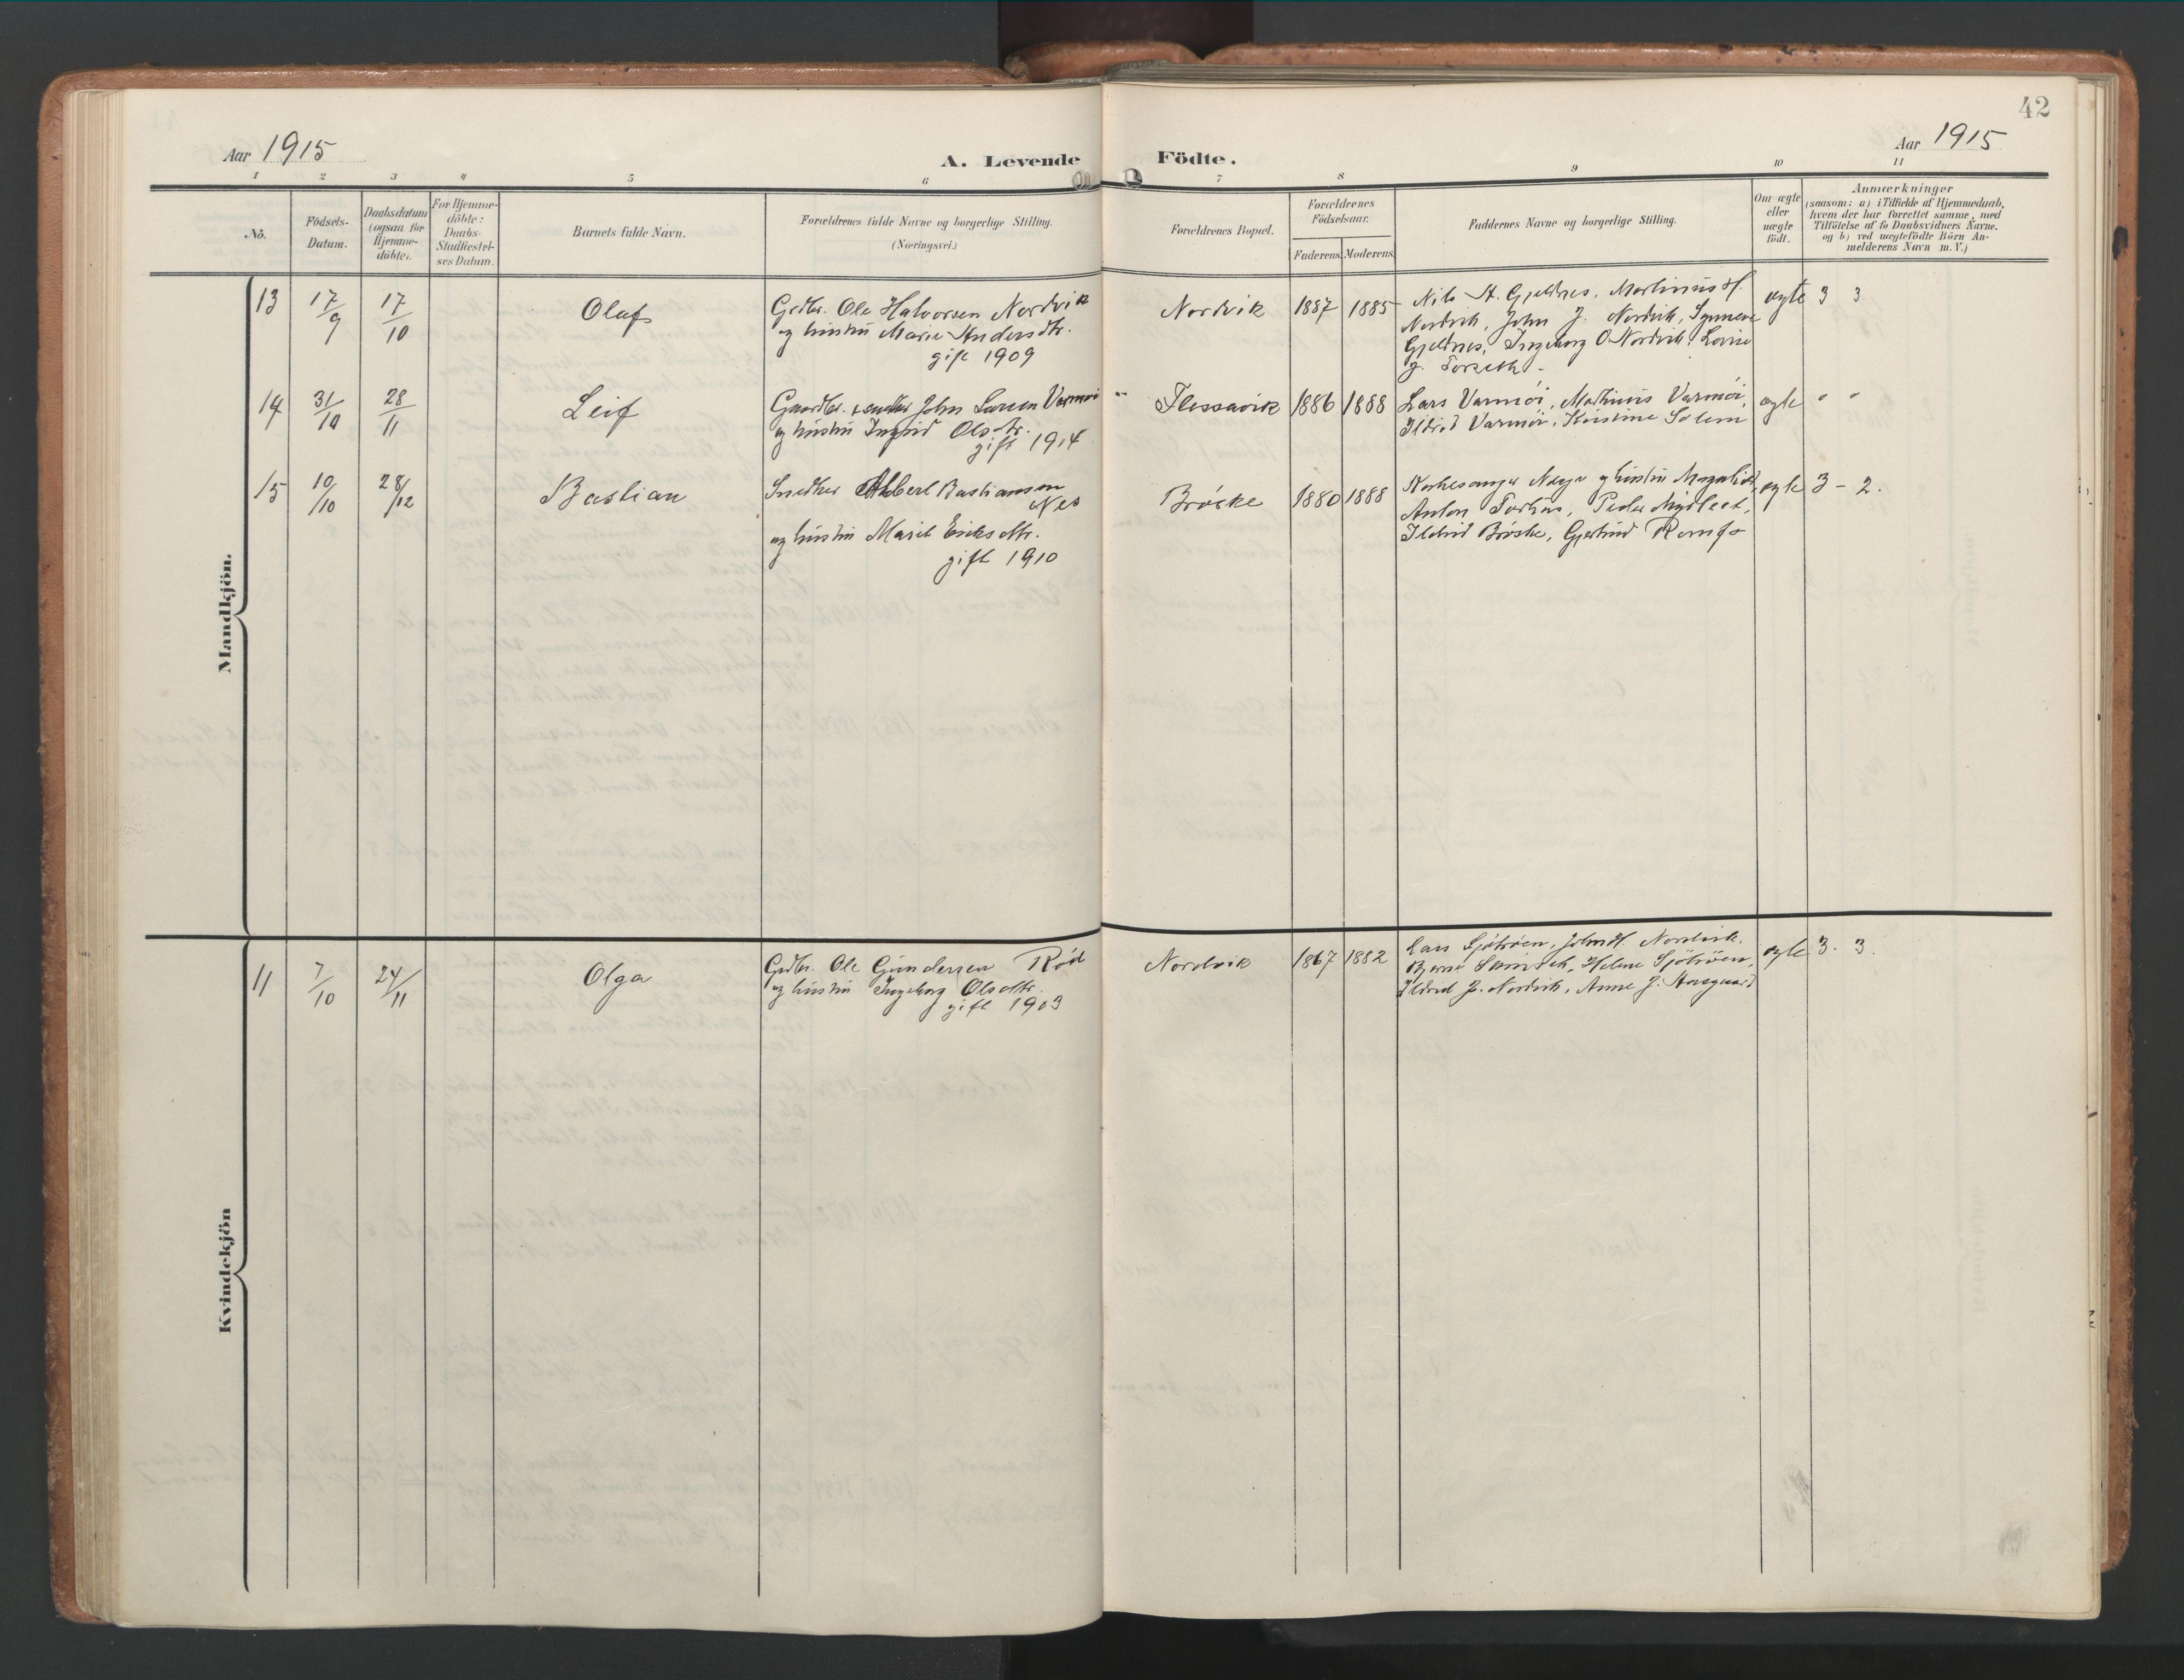 42
Aar 1915
A. Levende
Födte.
Aar 1915
1 2 3 4 5 6 7 8 9 10 11
No.
Födsels-
Datum.
Daabsdatum
(ogsaa for
Hjemme-
döbte).
For Hjemme-
döbte:
Daabs-
Stadfæstel-
ses Datum.
Barnets fulde Navn.
Forældrenes fulde Navne og borgerlige Stilling.
(Næringsvei.)
Forældrenes Bopæl.
Forældrenes
Födselsaar.
Faderens. Moderens.
Faddernes Navne og borgerlige Stilling.
Om ægte
eller
uægte
födt.
Anmærkninger
(saasom: a) i Tilfælde af Hjemmedaab,
hvem der har forrettet samme, med
Tilföielse af to Daabsvidners Navne.
og b) ved uægtefödte Börn An-
melderens Navn m. V.)
Mandkjön.
13 17/9 17/10 Olaf
Grdbr. Ole Halvorsen Nordvik
og hustru Marie Andersdtr.
gift 1909
Nordvik 1887 1885
Nils A. Gjeldnes, Martinus H.
Nordvik, John J. Nordvik, Synneve
Gjeldnes, Ingeborg O. Nordvik,
J. Forseth
ægte 3 3
14 31/10 28/11 Leif
Gaardbr. John Larsen Varmøi
og hustru Ingrid Olsdtr.
gift 1914
Flessavik 1886 1888
Lars Varmøi, Mathinus Varmøi,
Ildrid Varmøi, Kristine Solem
ægte " "
15 10/10 28/12 Bastian
Snedker Albert Bastiansen
Nes
og hustru Marit Eriksdtr.
gift 1910
Brøske 1880 1888
Kirkesanger og hustru
Anton
Ildrid Brøske, Gjertrud
ægte 3 - 2.
Kvindekjön
11 7/10 24/11 Olga
Grdbr. Ole Gundersen Röd
og hustru Ingeborg Olsdtr.
gift 1903
Nordvik 1867 1882
Lars Sjötröen, John H. Nordvik,
Bjerne Helene Sjötröen,
Ildrid J. Nordvik, Anne J.
ægte 3. 3.